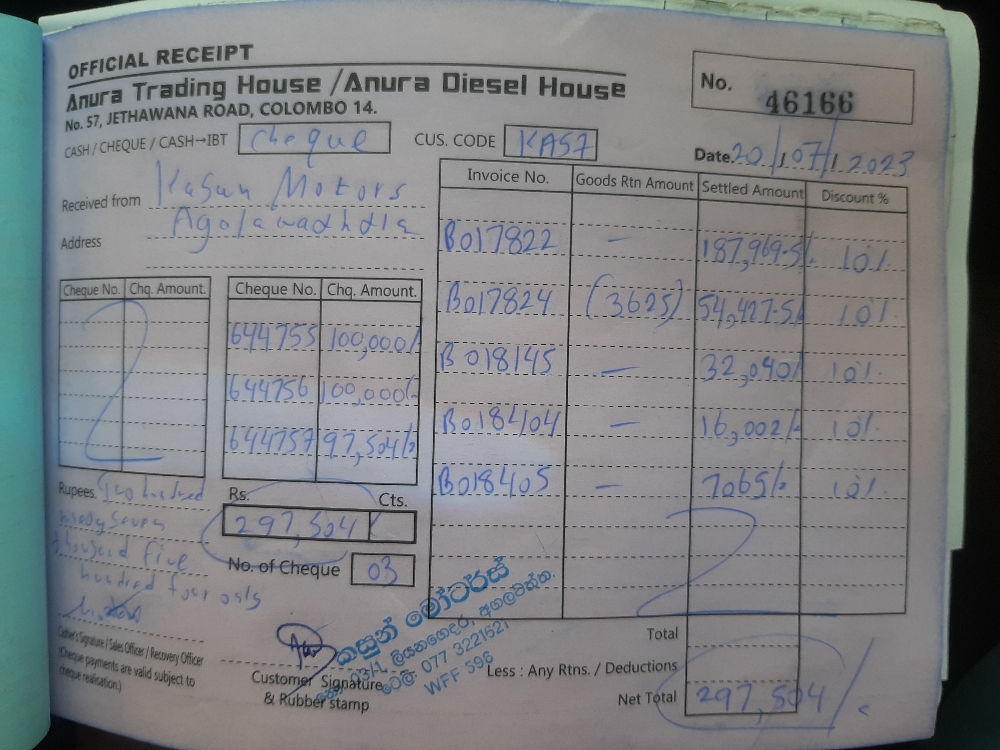 OFFICIAL RECEIPT
Anura Trading House / Anura Diesel House
No. 57, JETHAWANA ROAD, COLOMBO 14.
No. 46166
CASH / CHEQUE / CASH→IBT Cheque CUS. CODE KA57
Date. 20/07/2023
Received from Kasun Motors
Address
Invoice No. Goods Rtn Amount Settled Amount Discount %
B017822 — 187,969.5/ 10%
B017824 (3625) 54,427.5/ 10%
B018145 — 32,040/ 10%
B0184104 — 16,002/- 10%
B018405 — 7065/- 10%
Cheque No. Chq. Amount. Cheque No. Chq. Amount.
644755 100,000/
644756 100,000/-
644757 97,504/-
Rupees. Two hundred
seven
five
hundred four only
Rs. Cts.
297,504/
No. of Cheque 03
Cashier's Signature / Sales Officer / Recovery Officer
(Cheque payments are valid subject to
cheque realisation.)
Customer Signature
& Rubber stamp
කසුන් මෝටර්ස්
03/1, ලියනගෙදර, අගලවත්ත.
ටෙලි- 077 3221521
WFF 596
Total
Less : Any Rtns. / Deductions
Net Total 297,504/-